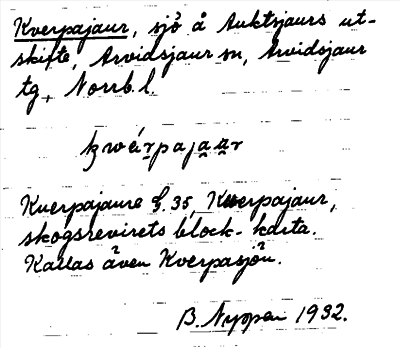 Kverpajaur, sjö å Auktsjaurs ut-
skifte, Arvidsjaur sn, Arvidsjaur
tg, Norrb. l.
kwɛ́r̥pajau̯r
Kuerpajaure G. 35, Kuerpajaur,
skogsrevirets block-karta.
Kallas även Kverpasjön.
B. Nyppen 1932.